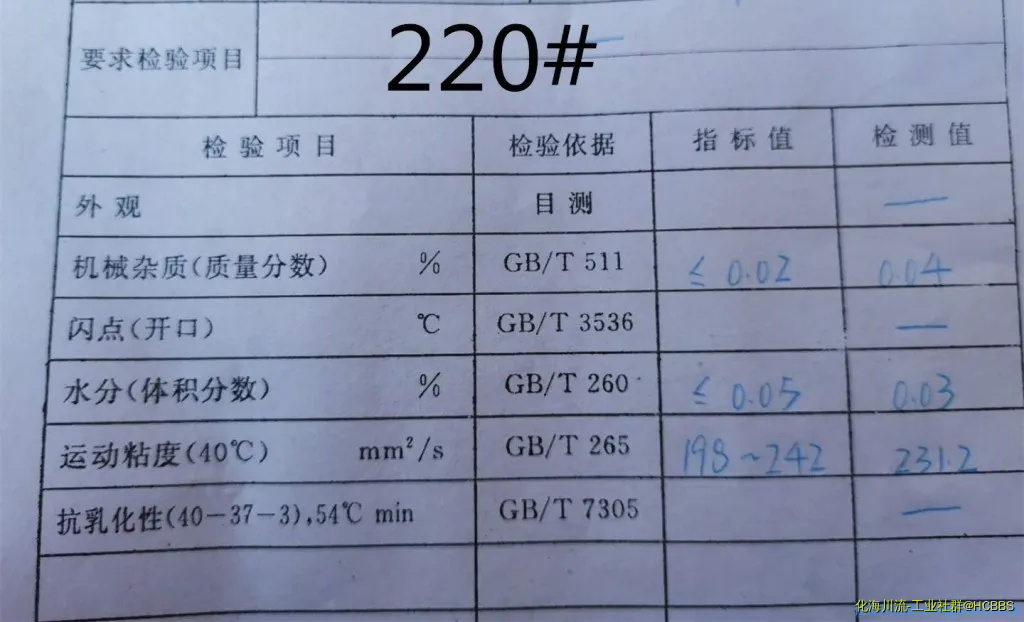 220#
要求检验项目
检验项目 检验依据 指标值 检测值
外观 目测 —
机械杂质(质量分数) % GB/T 511 ≤0.02 0.04
闪点(开口) ℃ GB/T 3536 —
水分(体积分数) % GB/T 260 ≤0.05 0.03
运动粘度(40℃) mm²/s GB/T 265 198~242 231.2
抗乳化性(40-37-3),54℃ min GB/T 7305 —
化海川流-工业社群@HCBBS